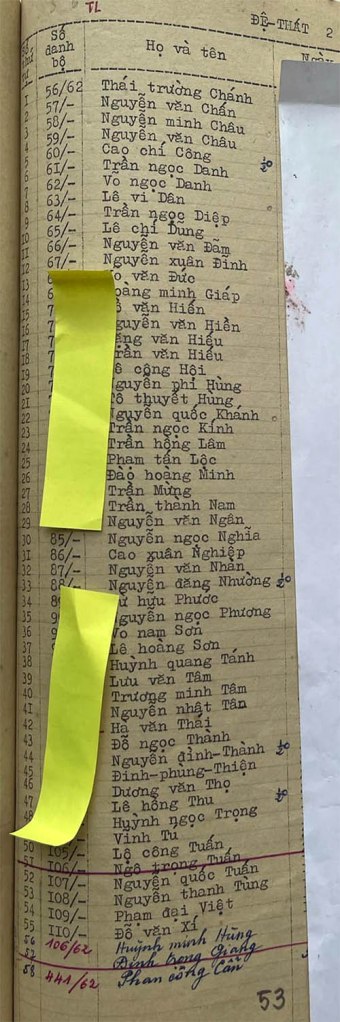 TL
ĐỆ-THẤT 2
Số danh bộ Họ và tên
1 56/62 Thái trường Chánh
2 57/- Nguyễn văn Chấn
3 58/- Nguyễn minh Châu
4 59/- Nguyễn văn Châu
5 60/- Cao chí Công
6 61/- Trần ngọc Danh
7 62/- Võ ngọc Danh
8 63/- Lê vi Dân
9 64/- Trần ngọc Diệp
10 65/- Lê chí Dũng
11 66/- Nguyễn văn Đãm
12 67/- Nguyễn xuân Đính
13 văn Đức
14 minh Giáp
văn Hiến
văn Hiền
văn Hiếu
văn Hiếu
công Hội
20 phi Hùng
21 Tô thuyết Hùng
22 Nguyễn quốc Khánh
23 Trần ngọc Kính
24 Trần hồng Lâm
25 Phạm tấn Lộc
26 Đào hoàng Minh
27 Trần Mừng
28 Trần thành Nam
29 Nguyễn văn Ngân
30 85/- Nguyễn ngọc Nghĩa
31 86/- Cao xuân Nghiệp
32 87/- Nguyễn văn Nhân
33 88/- Nguyễn đăng Nhường
34 hữu Phước
35 ngọc Phương
36 Võ nam Sơn
37 Lê hoàng Sơn
38 Huỳnh quang Tánh
39 Lưu văn Tâm
40 Trương minh Tâm
41 Nguyễn nhật Tân
42 Hà văn Thái
43 Đỗ ngọc Thành
44 Nguyễn đình-Thành
45 Đinh-phụng-Thiện
46 Dương văn Thọ
47 Lê hồng Thu
Huỳnh ngọc Trọng
Vĩnh Tu
50 105/- Lộ công Tuấn
51 Ngô trọng Tuấn
52 107/- Nguyễn quốc Tuấn
53 108/- Nguyễn thanh Tùng
54 109/- Phạm đại Việt
55 110/- Đỗ văn Xí
56 106/62 Huỳnh minh Hùng
57 Đinh trọng Giang
58 441/62 Phan công Cẩn
53